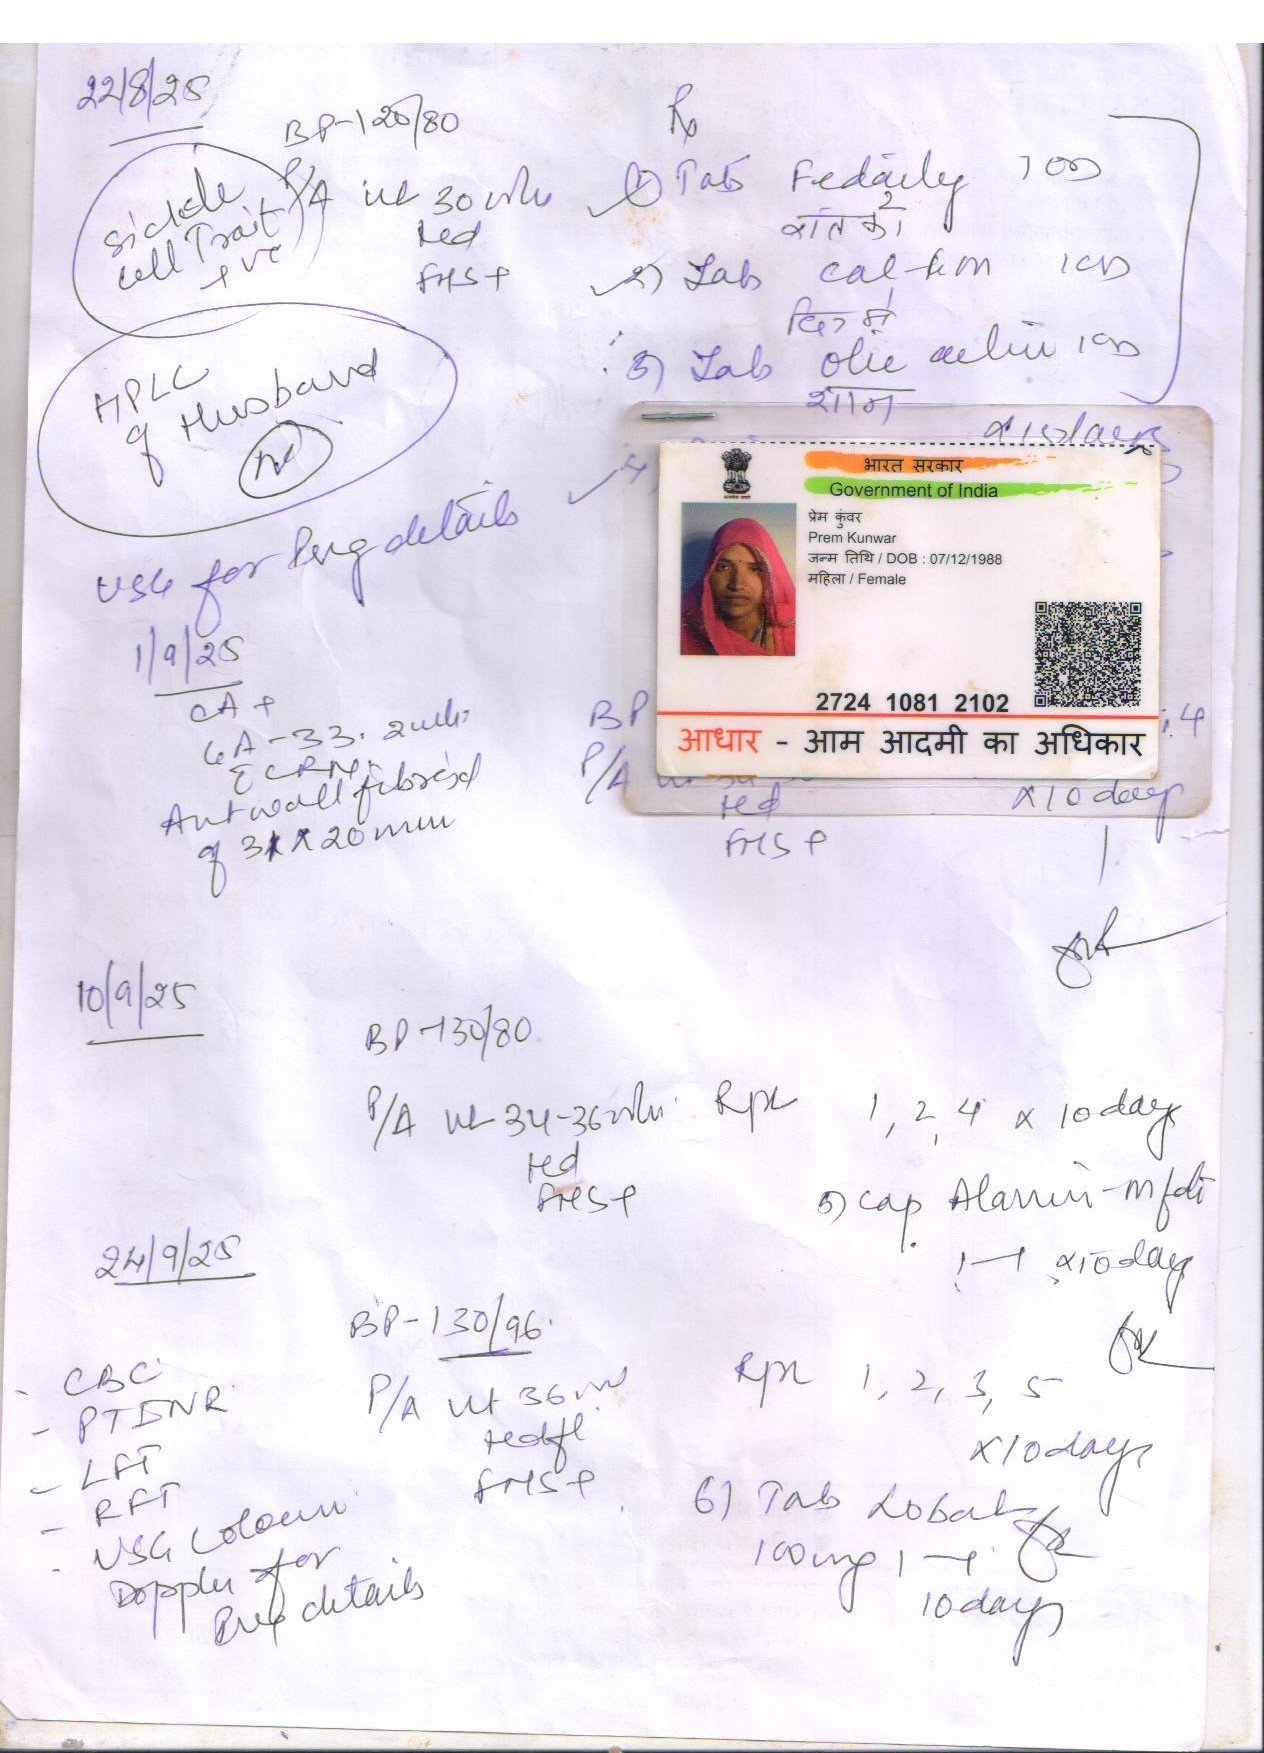 22/8/25
BP-120/80
Rx
Sickle
Cell Trait
+ve
P/A ut 30 wks
1) Tab Fedaily 1 OD
रात को
2) Tab cal-hm 1 OD
3) Tab 1 OD
शाम
FHS+
HPLC
of Husband
x 15 days
USG for Preg details
1/9/25
CA+
GA-33. 2 wks
Ant wall fibroid
of 31 x 20 mm
भारत सरकार
Government of India
प्रेम कुंवर
Prem Kunwar
जन्म तिथि / DOB : 07/12/1988
महिला / Female
2724 1081 2102
आधार - आम आदमी का अधिकार
BP
P/A
FHS+
x 10 days
10/9/25
BP-130/80
P/A ut 34-36 wks
FHS+
Rpt 1, 2, 4 x 10 days
5) Cap
1-1 x 10 days
24/9/25
BP-130/96
P/A ut 36 wks
FHS+
Rpt 1, 2, 3, 5
x 10 days
6) Tab Lobat
100mg 1-1
10 days
- CBC
- PT INR
- LFT
- RFT
- USG Colour
Doppler for
Preg details